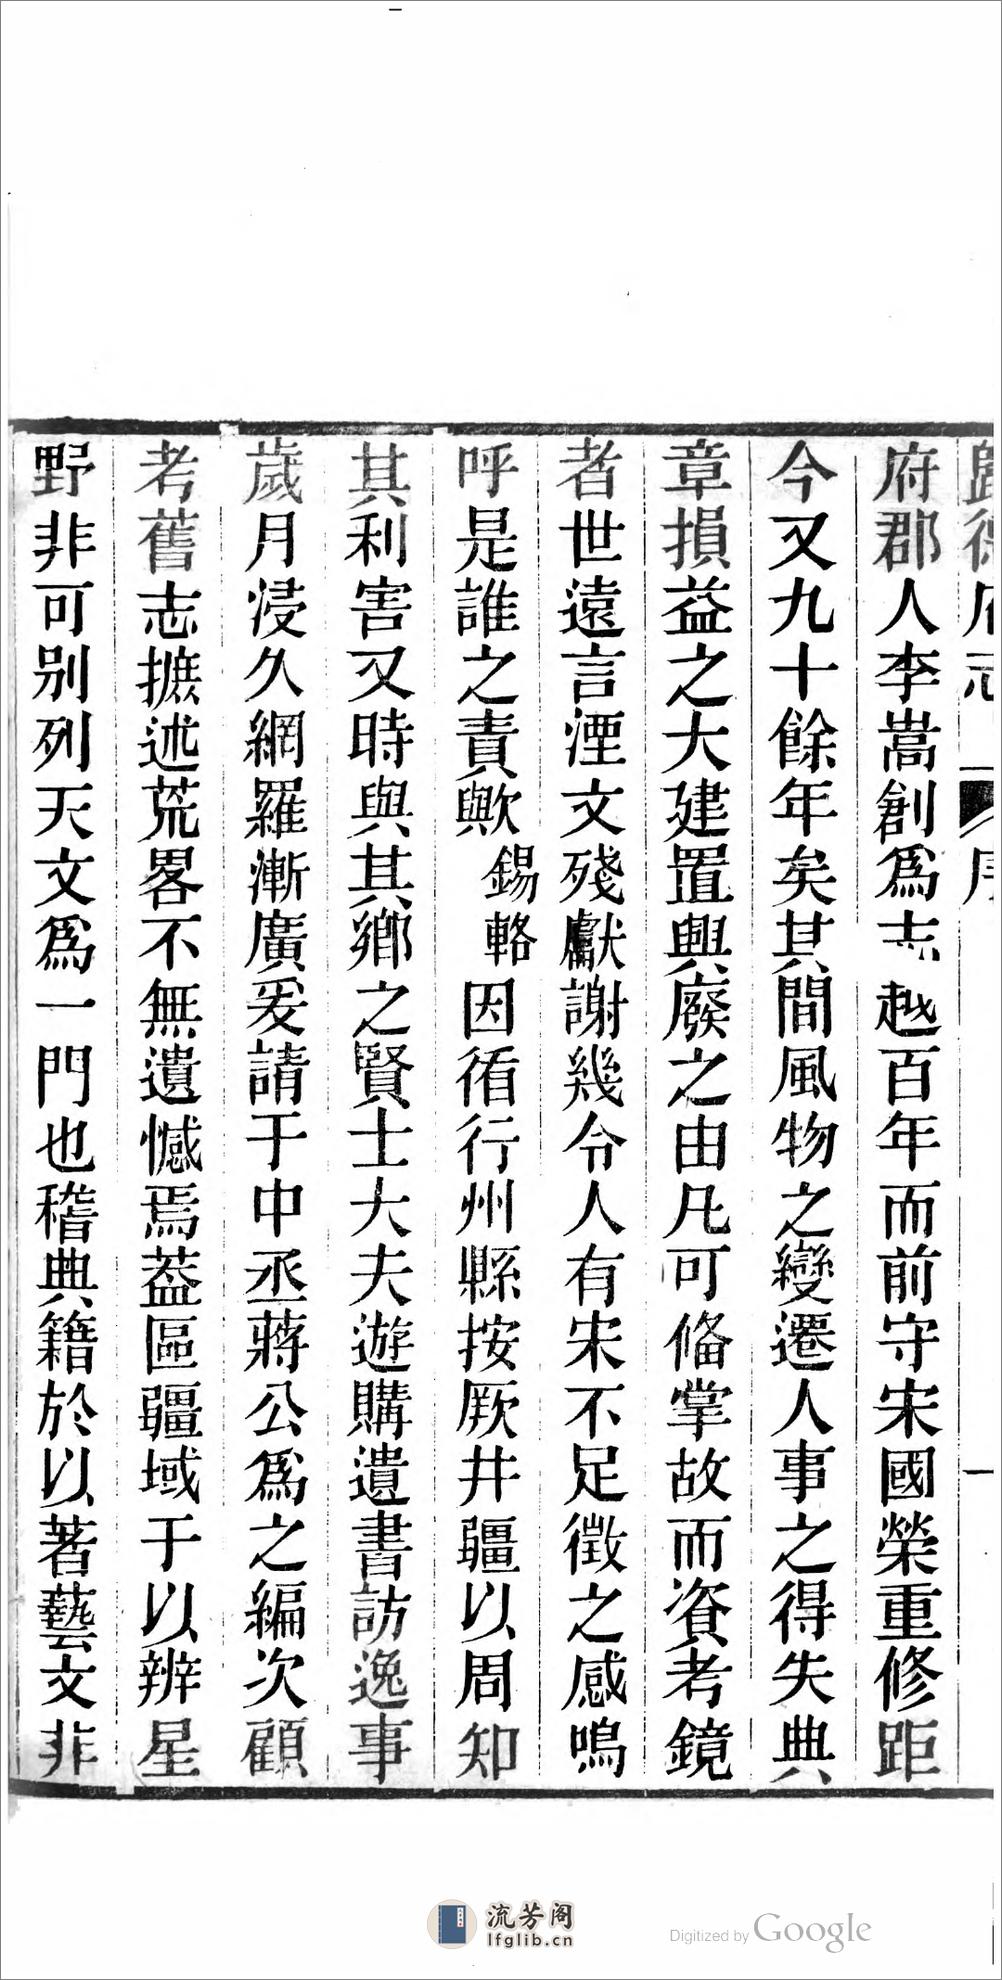 歸德府志 序 一
府郡人李嵩創爲志越百年而前守宋國榮重修距
今又九十餘年矣其間風物之變遷人事之得失典
章損益之大建置興廢之由凡可偹掌故而資考鏡
者世遠言湮文殘獻謝幾令人有宋不足徵之感嗚
呼是誰之責歟錫輅因循行州縣按厥井疆以周知
其利害又時與其鄉之賢士大夫遊購遺書訪逸事
歲月浸久網羅漸廣爰請于中丞蔣公爲之編次顧
考舊志摭述荒畧不無遺憾焉葢區疆域于以辨星
野非可别列天文爲一門也稽典籍於以著藝文非
流芳阁
lfglib.cn
Digitized by Google